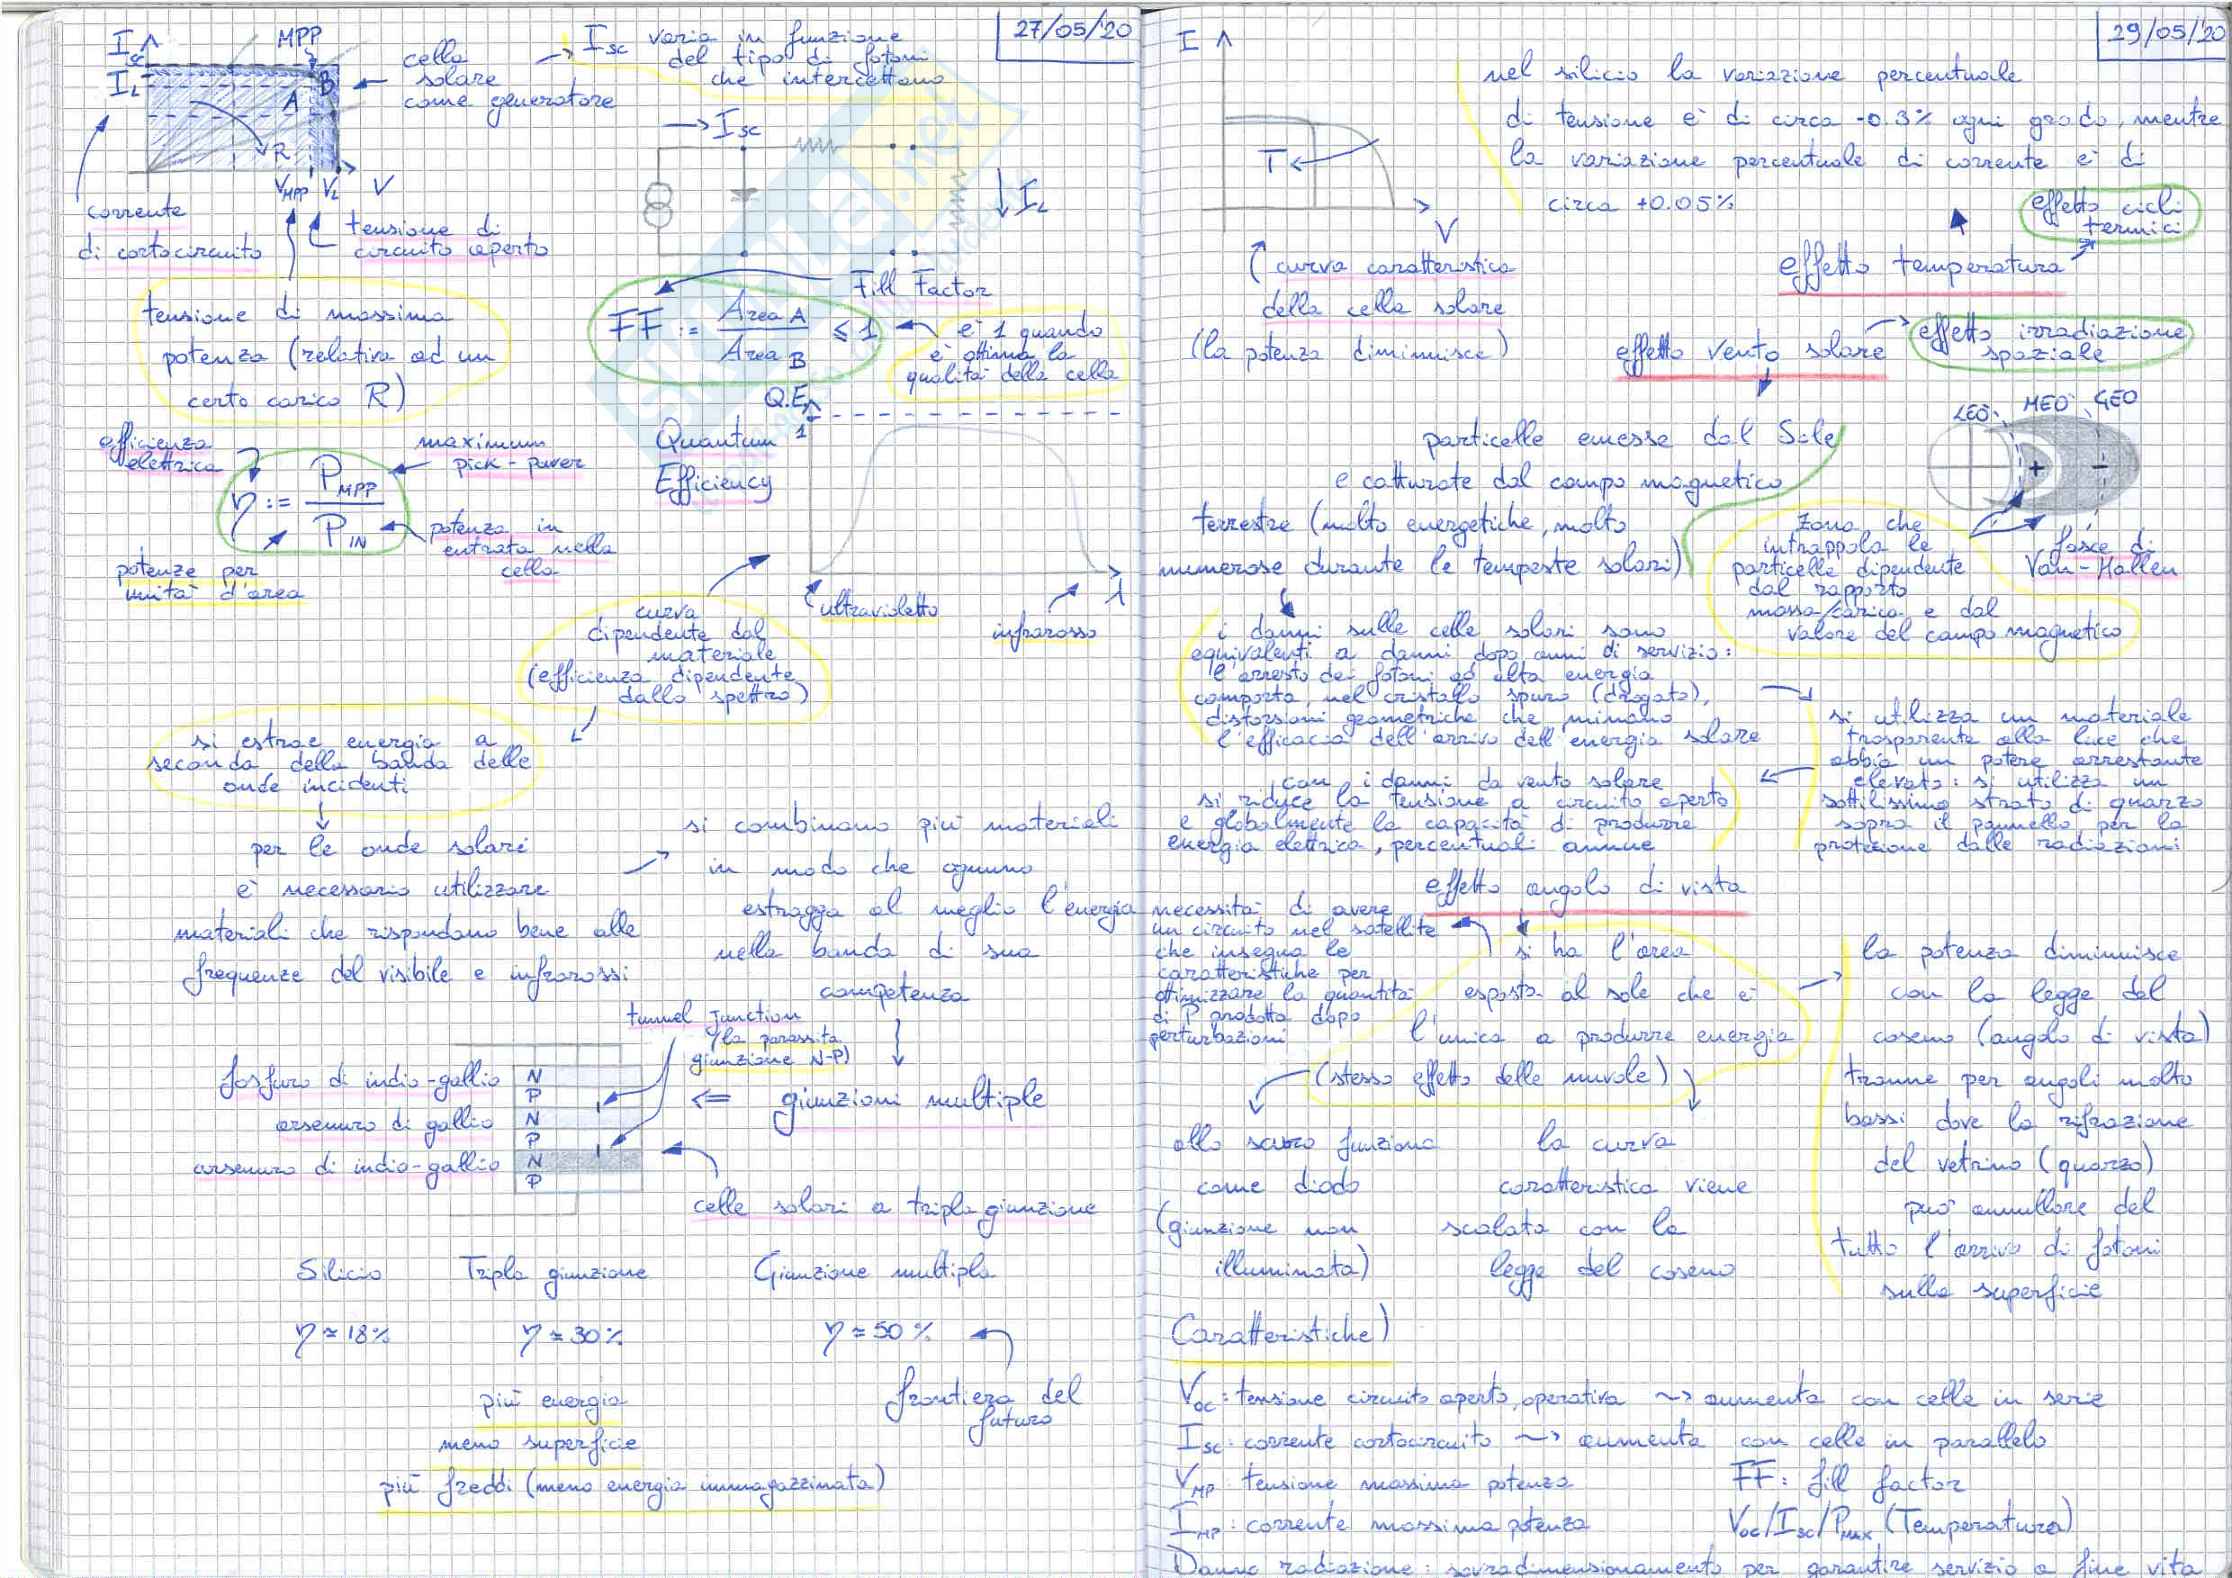 27/05/'20
I_SC
MPP
I_L
A
B
R
V_MPP
V_L
V
cella
solare
come generatore
I_SC varia in funzione
del tipo di fotoni
che intercettano
corrente
di cortocircuito
tensione di
circuito aperto
I_SC
I_L
tensione di massima
potenza (relativa ad un
certo carico R)
Fill Factor
FF := Area A / Area B ≤ 1
è 1 quando
è ottima la
qualità della cella
efficienza
elettrica
η := P_MPP / P_IN
maximum
pick-power
potenza in
entrata nella
cella
potenze per
unità d'area
Quantum
Efficiency
Q.E.
1
λ
ultravioletto
infrarosso
curva
dipendente dal
materiale
(efficienza dipendente
dallo spettro)
si estrae energia a
seconda della banda delle
onde incidenti
per le onde solari
è necessario utilizzare
materiali che rispondano bene alle
frequenze del visibile e infrarossi
si combinano più materiali
in modo che ognuno
estragga al meglio l'energia
nella banda di sua
competenza
tunnel junction
(la parassita
giunzione N-P)
fosfuro di indio-gallio
arsenuro di gallio
arsenuro di indio-gallio
N
P
N
P
N
P
⇐ giunzioni multiple
celle solari a tripla giunzione
Silicio Tripla giunzione Giunzione multipla
η ≈ 18% η ≈ 30% η ≈ 50%
più energia
meno superficie
più freddi (meno energia immagazzinata)
frontiera del
futuro
29/05/'20
I
T
V
nel silicio la variazione percentuale
di tensione è di circa -0.3% ogni grado, mentre
la variazione percentuale di corrente è di
circa +0.05%
effetto cicli
termici
effetto temperatura
curva caratteristica
della cella solare
(la potenza diminuisce)
effetto vento solare
effetto irradiazione
spaziale
LEO
MEO
GEO
+
-
particelle emesse dal Sole
e catturate dal campo magnetico
terrestre (molto energetiche, molto
numerose durante le tempeste solari)
zona che
intrappola le
particelle dipendente
dal rapporto
massa/carica e dal
valore del campo magnetico
fasce di
Van-Hallen
i danni sulle celle solari sono
equivalenti a danni dopo anni di servizio:
l'arresto dei fotoni ad alta energia
comporta, nel cristallo spuro (drogato),
distorsioni geometriche che minano
l'efficacia dell'arrivo dell'energia solare
si utilizza un materiale
trasparente alla luce che
abbia un potere arrestante
elevato: si utilizza un
sottilissimo strato di quarzo
sopra il pannello per la
protezione dalle radiazioni
con i danni da vento solare
si riduce la tensione a circuito aperto
e globalmente la capacità di produrre
energia elettrica, percentuali annue
effetto angolo di vista
necessità di avere
un circuito nel satellite
che insegua le
caratteristiche per
ottimizzare la quantità
di P prodotta dopo
perturbazioni
si ha l'area
esposta al sole che è
l'unica a produrre energia
(stesso effetto delle nuvole)
la potenza diminuisce
con la legge del
coseno (angolo di vista)
tranne per angoli molto
bassi dove la rifrazione
del vetrino (quarzo)
può annullare del
tutto l'arrivo di fotoni
sulla superficie
allo scuro funziona
come diodo
(giunzione non
illuminata)
la curva
caratteristica viene
scalata con la
legge del coseno
Caratteristiche)
V_OC: tensione circuito aperto, operativa ~> aumenta con celle in serie
I_SC: corrente cortocircuito ~> aumenta con celle in parallelo
V_MP: tensione massima potenza FF: fill factor
I_MP: corrente massima potenza V_OC/I_SC/P_MAX (Temperatura)
Danno radiazione: sovradimensionamento per garantire servizio a fine vita